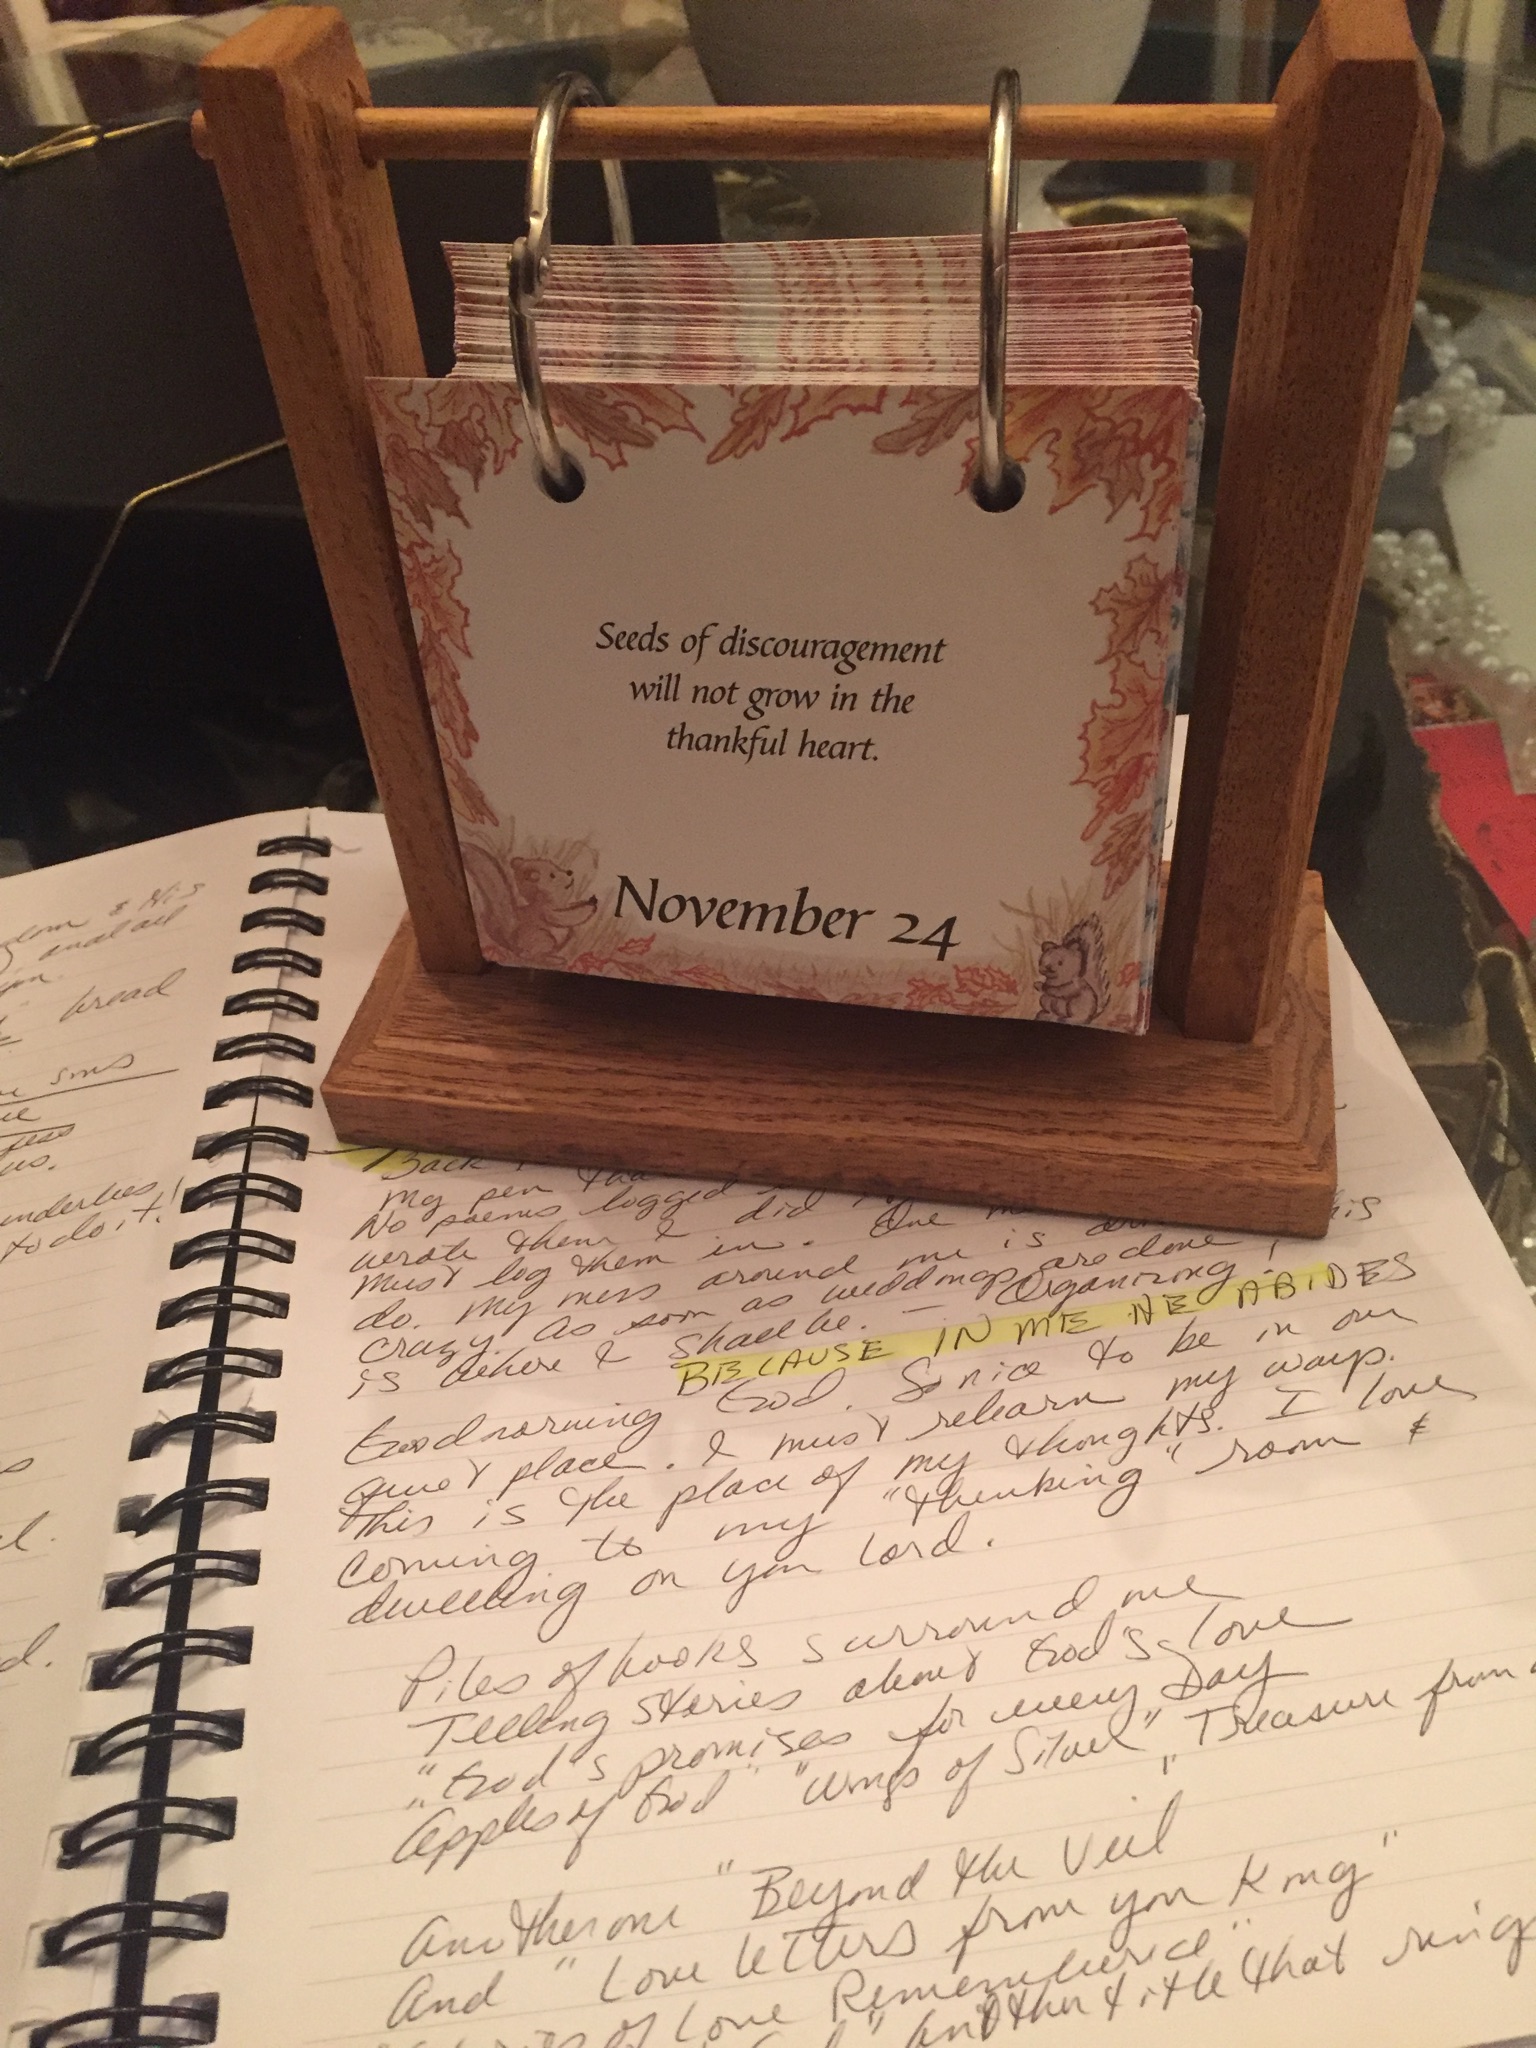 Seeds of discouragement
will not grow in the
thankful heart.
November 24
& His
bread
sms
us.
underlies
to do it!
Back
my pen
No poems logged
wrote them & did
must log them in. One
do. My mess around me is
crazy. As soon as weddings are done
is where I shall be. — Organizing!
BECAUSE IN ME HE ABIDES
Good morning God. So nice to be in our
quiet place. I must relearn my ways.
This is the place of my thoughts. I love
coming to my "thinking" room &
dwelling on you Lord.
Piles of books surround me
Telling stories about God's love
"God's promises for every Day
Apples of God" "Wings of Silver" "Treasure from
Another one "Beyond the Veil"
And "Love letters from your King"
of Love Remembered"
another title that rings